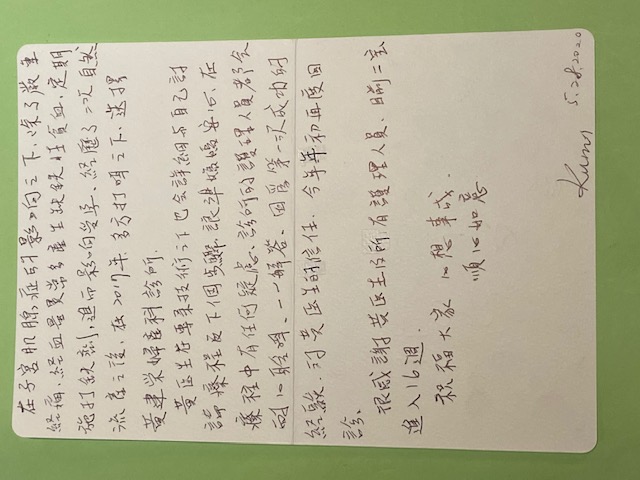 在子宮肌腺症的影响之下,除了嚴重
經痛、經血量異常多產生缺鐵性貧血,定期
施打鉄劑,進而影响受孕、經歷了二次自然
流產之後,在2017年多方打听之下,選擇
黃建榮婦產科診所.
黃医生在專業技術之下也会詳細与自己討
論療程及下個步驟,讓準媽媽安心,在
療程中有任何疑慮、診所的護理人員都会
耐心聆听、一一解答。因爲第一次成功的
經驗.对黃医生的信任.今年年初再度回
診、
很感謝黃医生及所有護理人員、目前二宝
進入16週.
祝福大家 心想事成.
順心如意
Kumi 5.28.2020